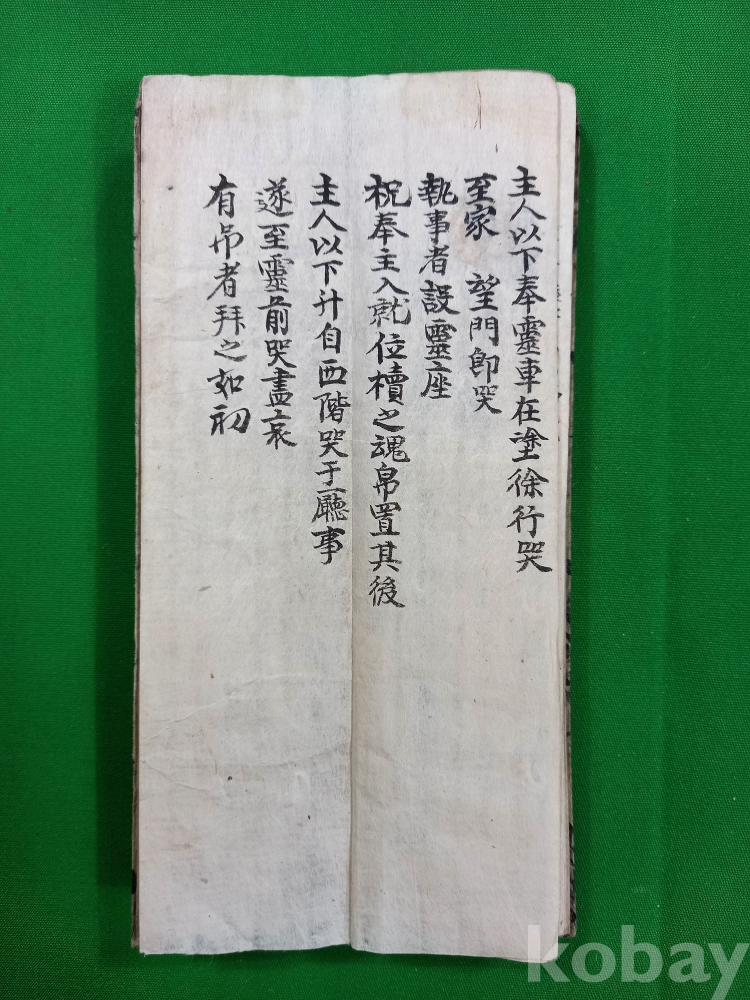 主人以下奉靈車在塗徐行哭
至家 望門即哭
執事者設靈座
祝奉主入就位櫝之魂帛置其後
主人以下升自西階哭于廳事
遂至靈前哭盡哀
有吊者拜之如初
kobay